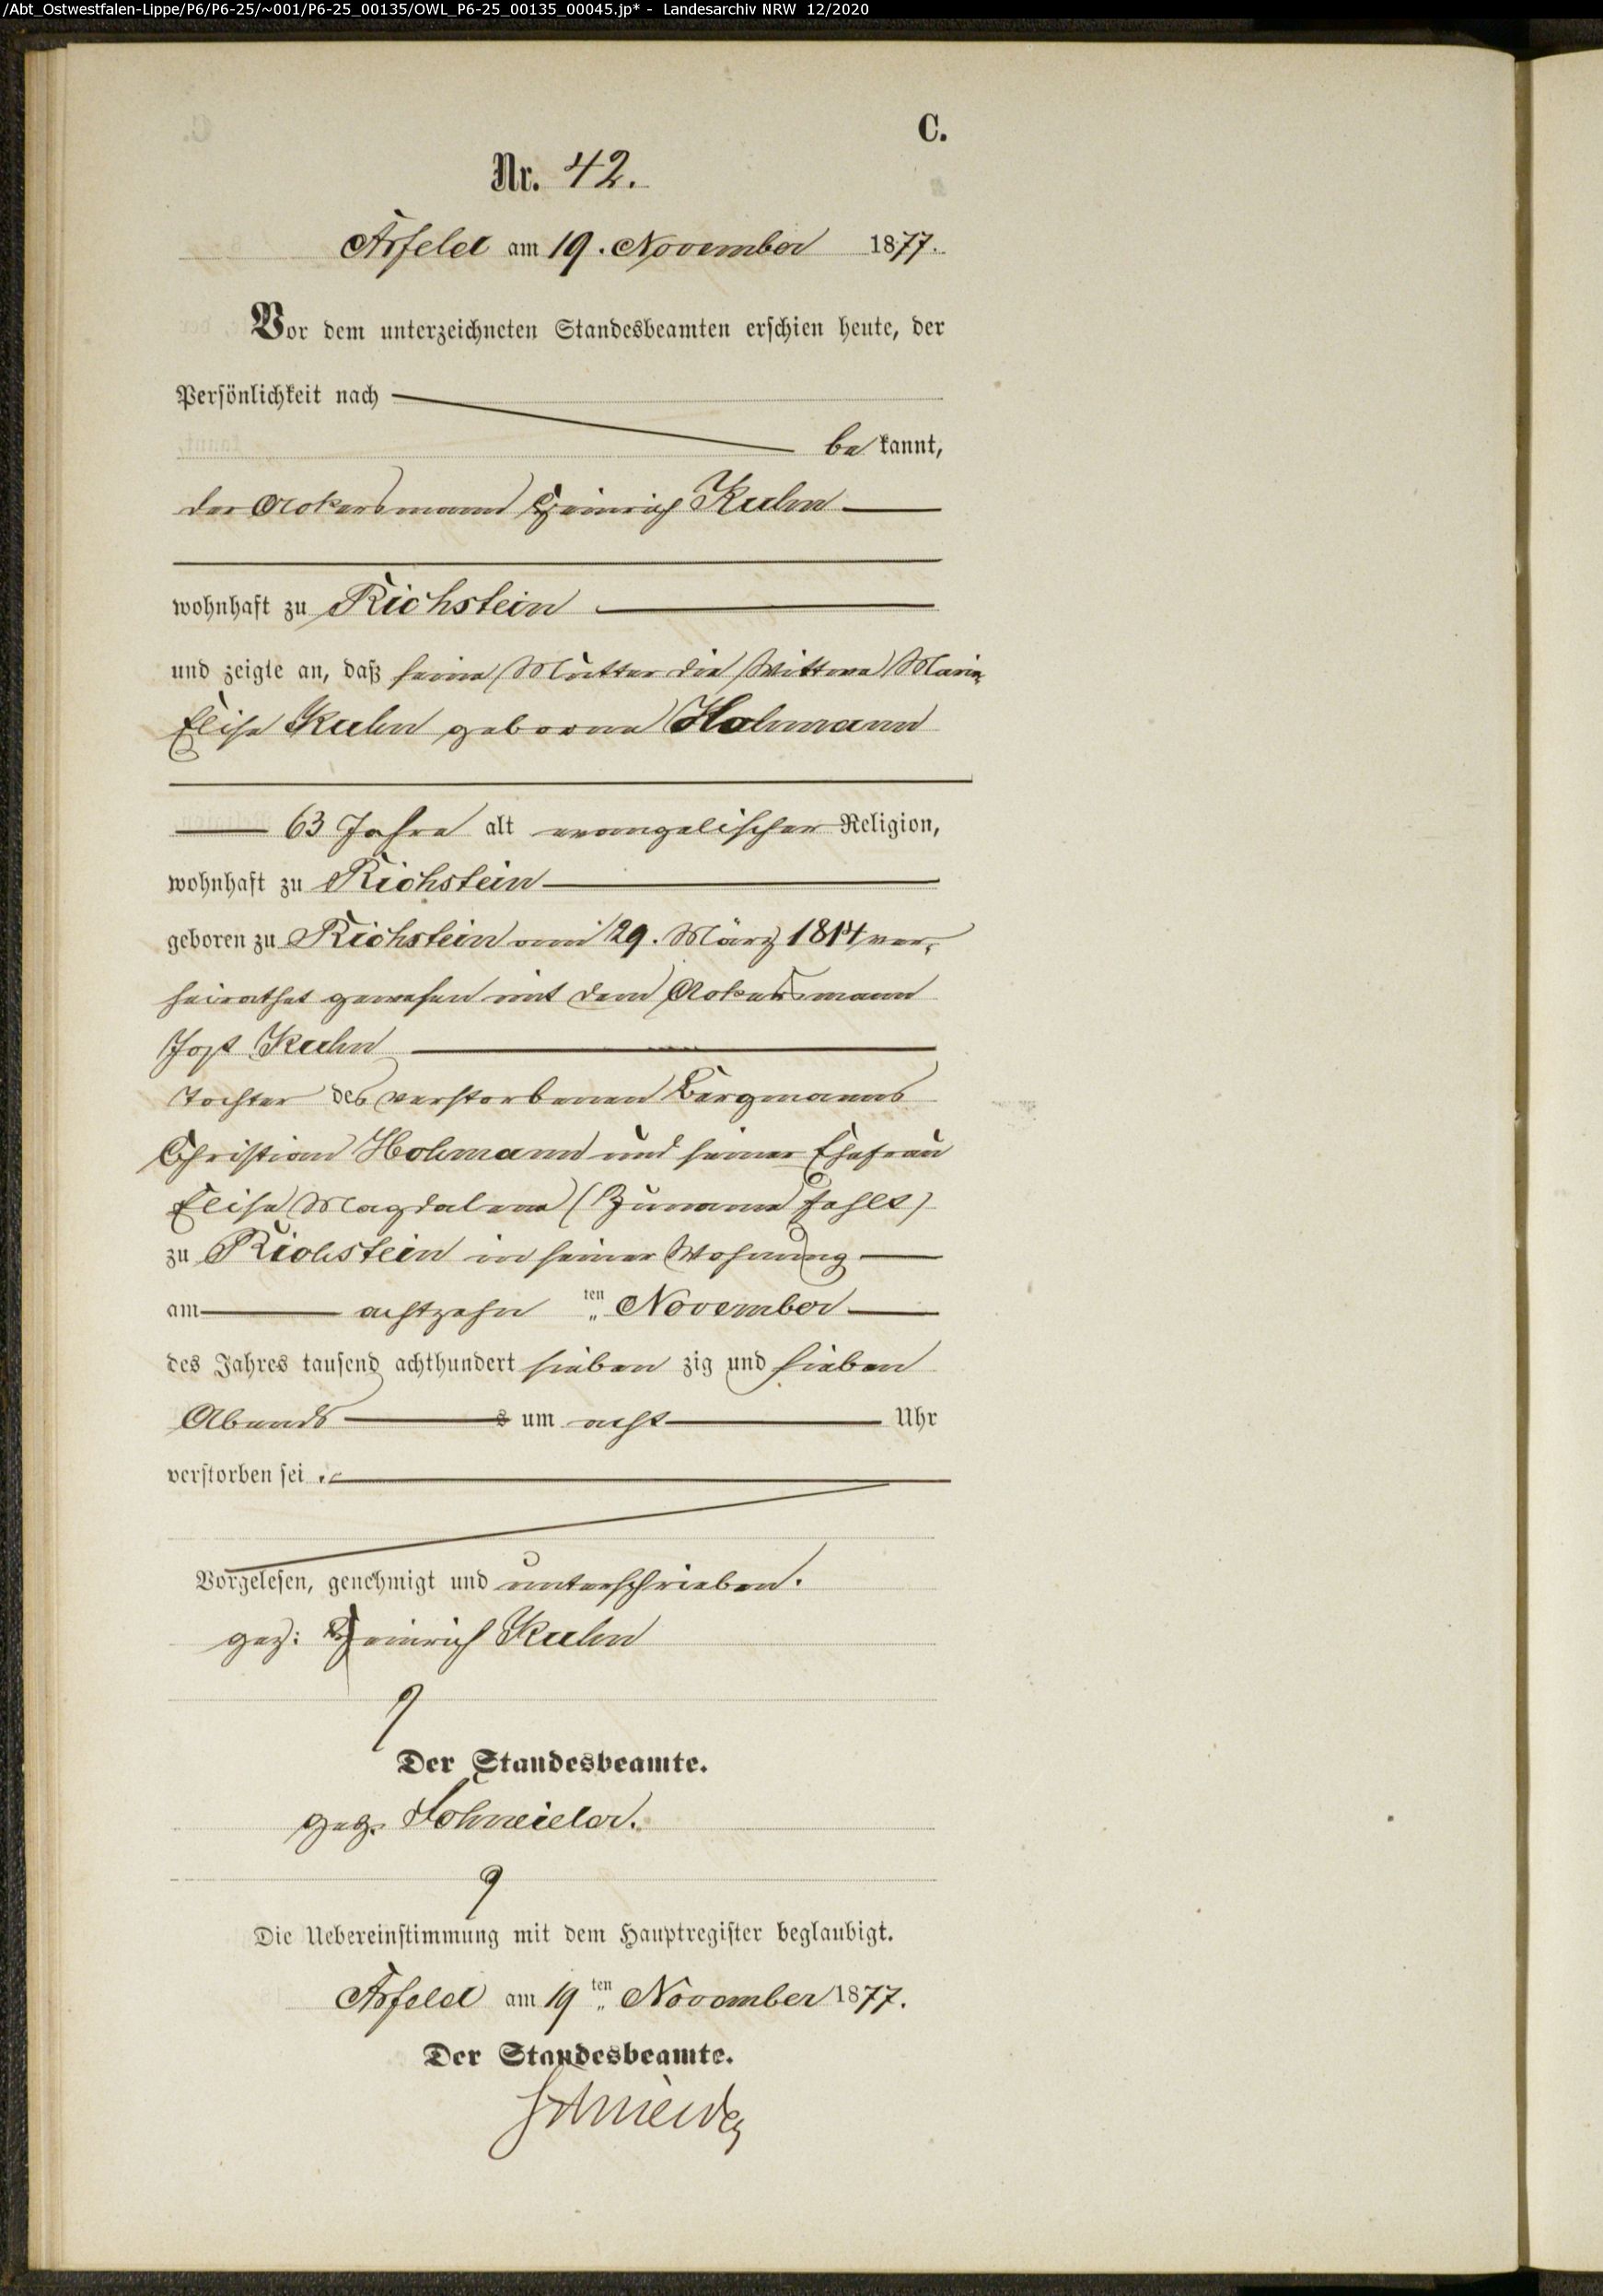 /Abt_Ostwestfalen-Lippe/P6/P6-25/~001/P6-25_00135/OWL_P6-25_00135_00045.jp* - Landesarchiv NRW 12/2020
C.
Nr. 42.
Arfeld am 19. November 1877.
Vor dem unterzeichneten Standesbeamten erschien heute, der
Persönlichkeit nach
be kannt,
der Ackersmann Heinrich Kuhn
wohnhaft zu Richstein
und zeigte an, daß seine Mutter die Wittwe Marie
Elise Kuhn geborne Hohmann
63 Jahre alt evangelischer Religion,
wohnhaft zu Richstein
geboren zu Richstein am 29. März 1814 ver-
heirathet gewesen mit dem Ackersmann
Jost Kuhn
Tochter des verstorbenen Bergmanns
Christian Hohmann und seiner Ehefrau
Elise Magdalene (Zuname fehlt)
zu Richstein in seiner Wohnung
am achtzehn ten November
des Jahres tausend achthundert sieben zig und sieben
Abends s um acht Uhr
verstorben sei .
Vorgelesen, genehmigt und unterschrieben.
gez: Heinrich Kuhn
Der Standesbeamte.
gez. Schneider.
Die Uebereinstimmung mit dem Hauptregister beglaubigt.
Arfeld am 19 ten November 1877.
Der Standesbeamte.
Schneider